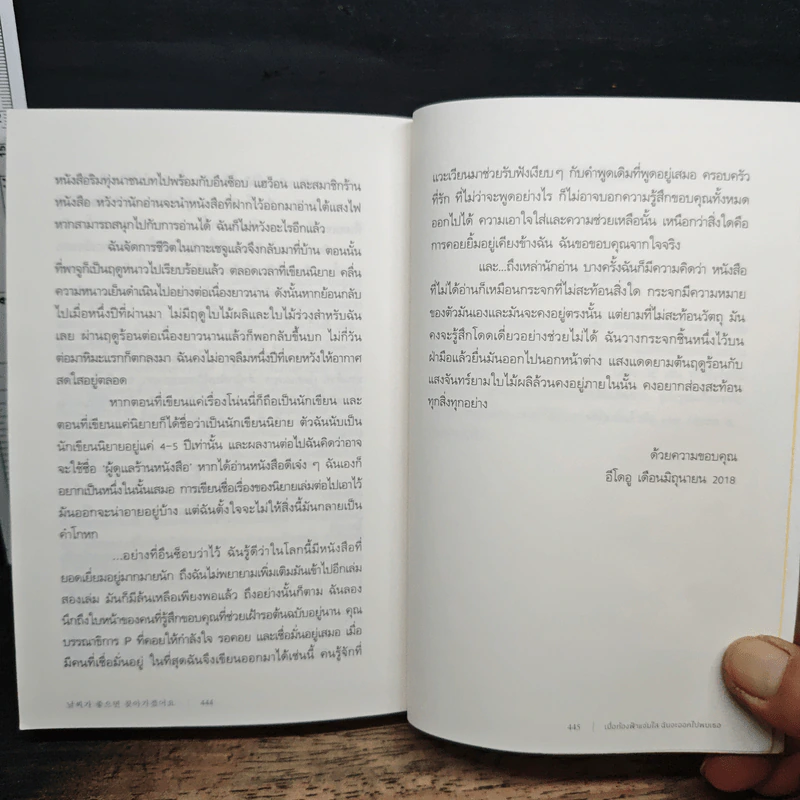 หนังสือริมทุ่งนาชนบทไปพร้อมกับอึนซ็อบ แฮว็อน และสมาชิกร้าน
หนังสือ หวังว่านักอ่านจะนำหนังสือที่ฝากไว้ออกมาอ่านใต้แสงไฟ
หากสามารถสนุกไปกับการอ่านได้ ฉันก็ไม่หวังอะไรอีกแล้ว
ฉันจัดการชีวิตในเกาะเชจูแล้วจึงกลับมาที่บ้าน ตอนนั้น
ที่พาจูก็เป็นฤดูหนาวไปเรียบร้อยแล้ว ตลอดเวลาที่เขียนนิยาย คลื่น
ความหนาวเย็นดำเนินไปอย่างต่อเนื่องยาวนาน ดังนั้นหากย้อนกลับ
ไปเมื่อหนึ่งปีที่ผ่านมา ไม่มีฤดูใบไม้ผลิและใบไม้ร่วงสำหรับฉัน
เลย ผ่านฤดูร้อนต่อเนื่องยาวนานแล้วก็พอกลับขึ้นบก ไม่กี่วัน
ต่อมาหิมะแรกก็ตกลงมา ฉันคงไม่อาจลืมหนึ่งปีที่เคยหวังให้อากาศ
สดใสอยู่ตลอด
หากตอนที่เขียนแค่เรื่องโน่นนี่ก็ถือเป็นนักเขียน และ
ตอนที่เขียนแค่นิยายก็ได้ชื่อว่าเป็นนักเขียนนิยาย ตัวฉันนับเป็น
นักเขียนนิยายอยู่แค่ 4-5 ปีเท่านั้น และผลงานต่อไปฉันคิดว่าอาจ
จะใช้ชื่อ 'ผู้ดูแลร้านหนังสือ' หากได้อ่านหนังสือดีเจ๋ง ๆ ฉันเองก็
อยากเป็นหนึ่งในนั้นเสมอ การเขียนชื่อเรื่องของนิยายเล่มต่อไปเอาไว้
มันออกจะน่าอายอยู่บ้าง แต่ฉันตั้งใจจะไม่ให้สิ่งนี้มันกลายเป็น
คำโกหก
...อย่างที่อึนซ็อบว่าไว้ ฉันรู้ดีว่าในโลกนี้มีหนังสือที่
ยอดเยี่ยมอยู่มากมายนัก ถึงฉันไม่พยายามเพิ่มเติมมันเข้าไปอีกเล่ม
สองเล่ม มันก็มีล้นเหลือเพียงพอแล้ว ถึงอย่างนั้นก็ตาม ฉันลอง
นึกถึงใบหน้าของคนที่รู้สึกขอบคุณที่ช่วยเฝ้ารอต้นฉบับอยู่นาน คุณ
บรรณาธิการ P ที่คอยให้กำลังใจ รอคอย และเชื่อมั่นอยู่เสมอ เมื่อ
มีคนที่เชื่อมั่นอยู่ ในที่สุดฉันจึงเขียนออกมาได้เช่นนี้ คนรู้จักที่
날씨가 좋으면 찾아가겠어요 444
แวะเวียนมาช่วยรับฟังเงียบ ๆ กับคำพูดเดิมที่พูดอยู่เสมอ ครอบครัว
ที่รัก ที่ไม่ว่าจะพูดอย่างไร ก็ไม่อาจบอกความรู้สึกขอบคุณทั้งหมด
ออกไปได้ ความเอาใจใส่และความช่วยเหลือนั้น เหนือกว่าสิ่งใดคือ
การคอยยิ้มอยู่เคียงข้างฉัน ฉันขอขอบคุณจากใจจริง
และ...ถึงเหล่านักอ่าน บางครั้งฉันก็มีความคิดว่า หนังสือ
ที่ไม่ได้อ่านก็เหมือนกระจกที่ไม่สะท้อนสิ่งใด กระจกมีความหมาย
ของตัวมันเองและมันจะคงอยู่ตรงนั้น แต่ยามที่ไม่สะท้อนวัตถุ มัน
คงจะรู้สึกโดดเดี่ยวอย่างช่วยไม่ได้ ฉันวางกระจกชิ้นหนึ่งไว้บน
ฝ่ามือแล้วยื่นมันออกไปนอกหน้าต่าง แสงแดดยามต้นฤดูร้อนกับ
แสงจันทร์ยามใบไม้ผลิล้วนคงอยู่ภายในนั้น คงอยากส่องสะท้อน
ทุกสิ่งทุกอย่าง
ด้วยความขอบคุณ
อีโดอู เดือนมิถุนายน 2018
445 | เมื่อท้องฟ้าแจ่มใส ฉันจะออกไปพบเธอ